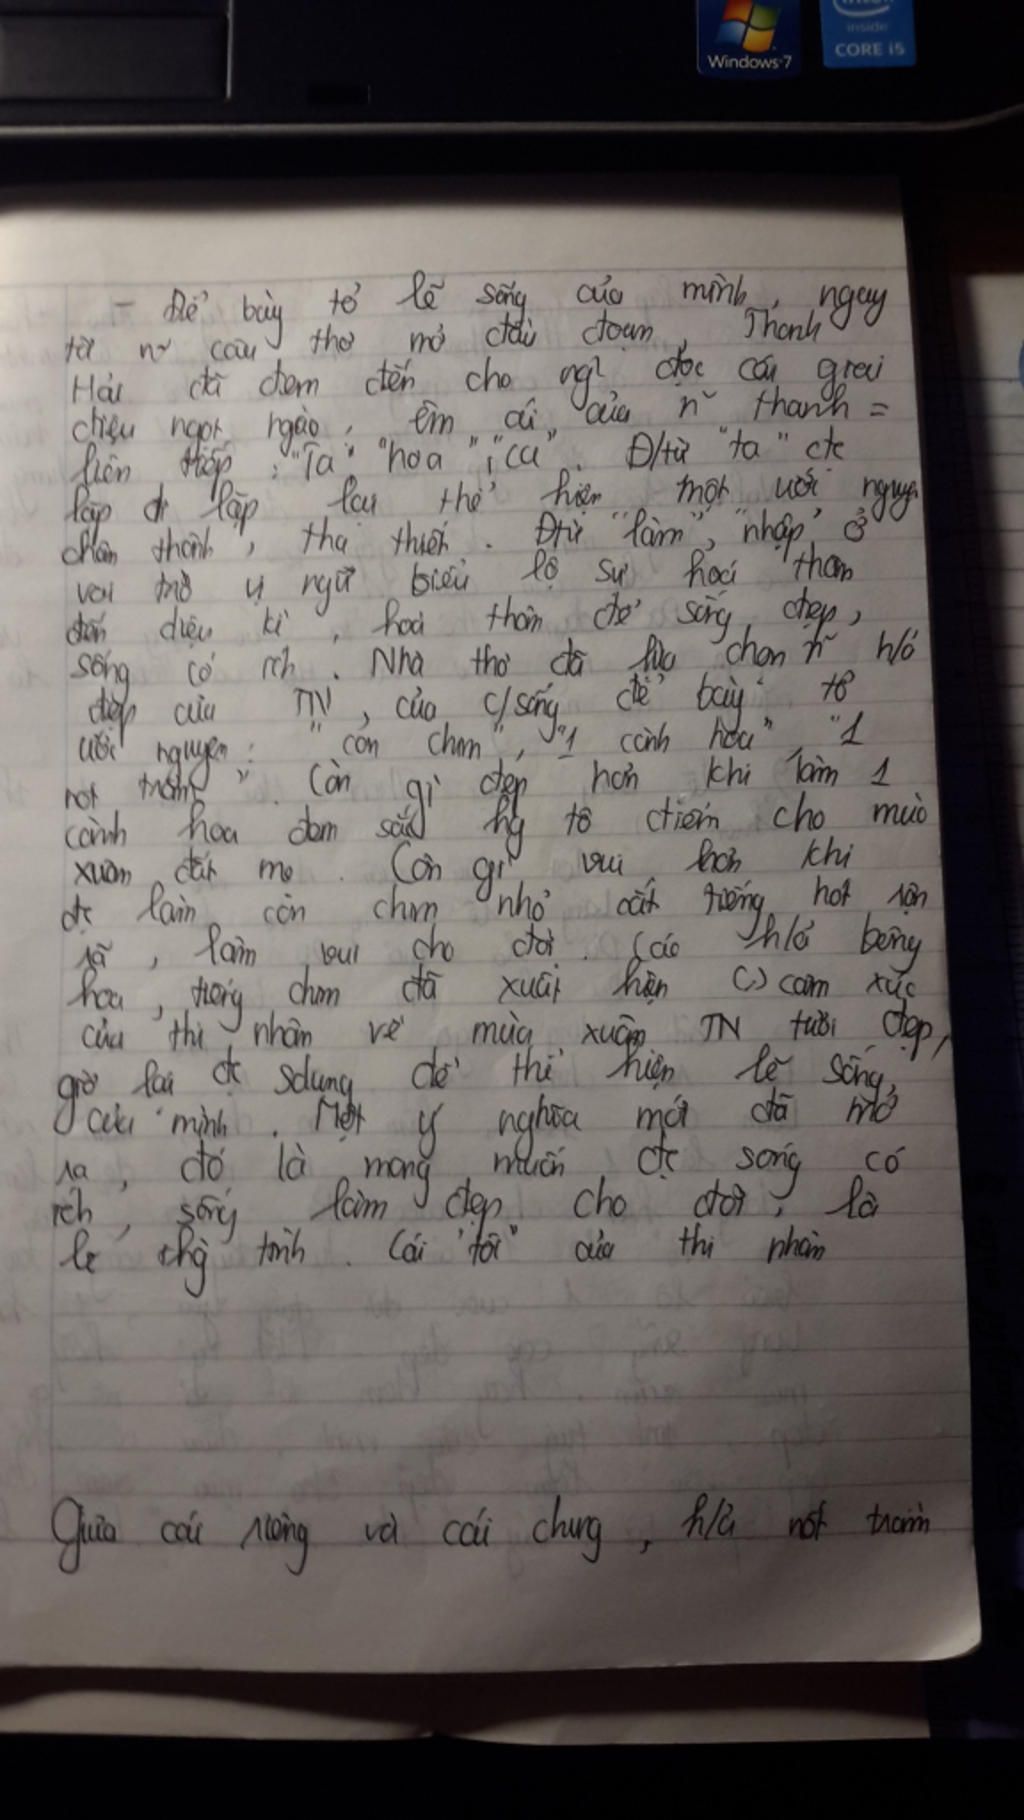 Windows 7
intel
inside
CORE i5
– Để bày tỏ lẽ sống của mình, ngay
từ n~ câu thơ mở đầu đoạn, Thanh
Hải đã đem đến cho ng² đọc cái giai
điệu ngọt ngào, êm ái của n~ thanh =
liên tiếp : "Ta" "hoa", "ca". Đ/từ "ta" đc
lặp đi lặp lại thể hiện một ước nguyện
chân thành, tha thiết. Đtừ "làm", "nhập" ở
vai trò vị ngữ biểu lộ sự hoá thân
đến diệu kì, hoá thân để sống đẹp,
sống có ích. Nhà thơ đã lựa chọn n~ h/ả
đẹp của TN, của c/sống để bày tỏ
ước nguyện: "con chim", "1 cành hoa" "1
nốt trầm". Còn gì đẹp hơn khi làm 1
cành hoa đem sắc hg tô điểm cho mùa
xuân đất mẹ. Còn gì vui hơn khi
đc làm con chim nhỏ cất tiếng hót rộn
rã, làm vui cho đời. Các h/ả bông
hoa, tiếng chim đã xuất hiện (.) cảm xúc
của thi nhân về mùa xuân TN tươi đẹp,
giờ lại đc sdụng để thể hiện lẽ sống
của mình. Một ý nghĩa mới đã mở
ra, đó là mong muốn đc sống có
ích, sống làm đẹp cho đời, là
lẽ thg tình. Cái "tôi" của thi nhân
Giữa cái riêng và cái chung, h/ả nốt trầm